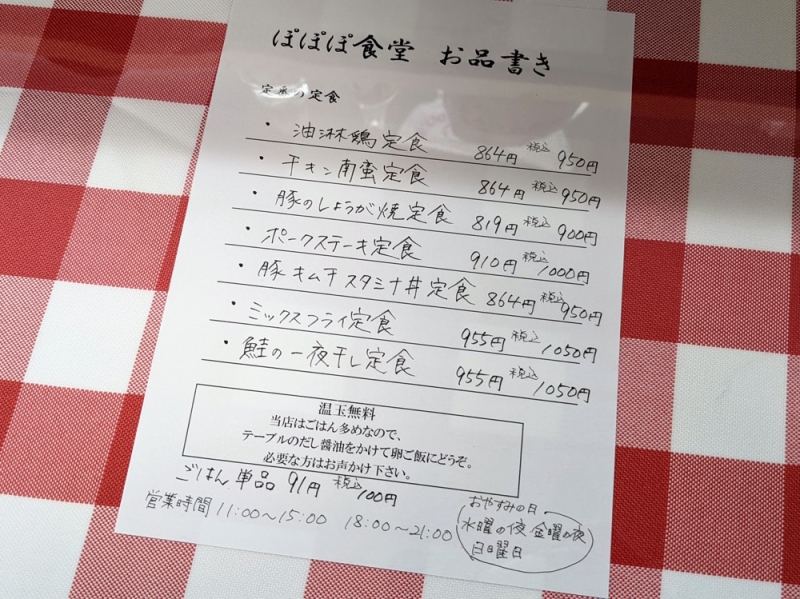 ぽぽぽ食堂 お品書き
定食
・油淋鶏定食 864円 税込 950円
・チキン南蛮定食 864円 税込 950円
・豚のしょうが焼定食 819円 税込 900円
・ポークステーキ定食 910円 税込 1000円
・豚キムチスタミナ丼定食 864円 税込 950円
・ミックスフライ定食 955円 税込 1050円
・鮭の一夜干し定食 955円 税込 1050円
温玉無料
当店はごはん多めなので、
テーブルのだし醤油をかけて卵ご飯にどうぞ。
必要な方はお声かけ下さい。
ごはん単品 91円 税込 100円
営業時間 11:00〜15:00 18:00〜21:00
おやすみの日
水曜の夜 金曜の夜
日曜日